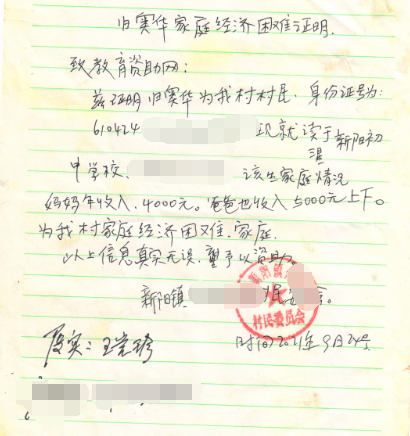 归奕华家庭经济困难证明.
致教育资助网:
兹证明归奕华为我村村民、身份证号为:
610424 现就读于新阳初
中学校、 该生家庭情况
妈妈年收入、4000元。爸爸也收入5000元上下。
为我村家庭经济困难、家庭.
以上信息真实无误、望予以资助.
新阳镇 委会。
村民委员会
时间2021年9月24号